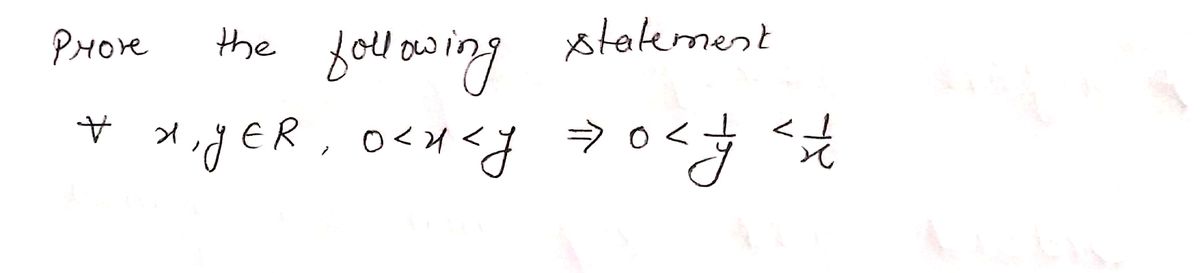 Prove the following statement
∀ x, y ∈ R, 0 < x < y ⇒ 0 < 1/y < 1/x